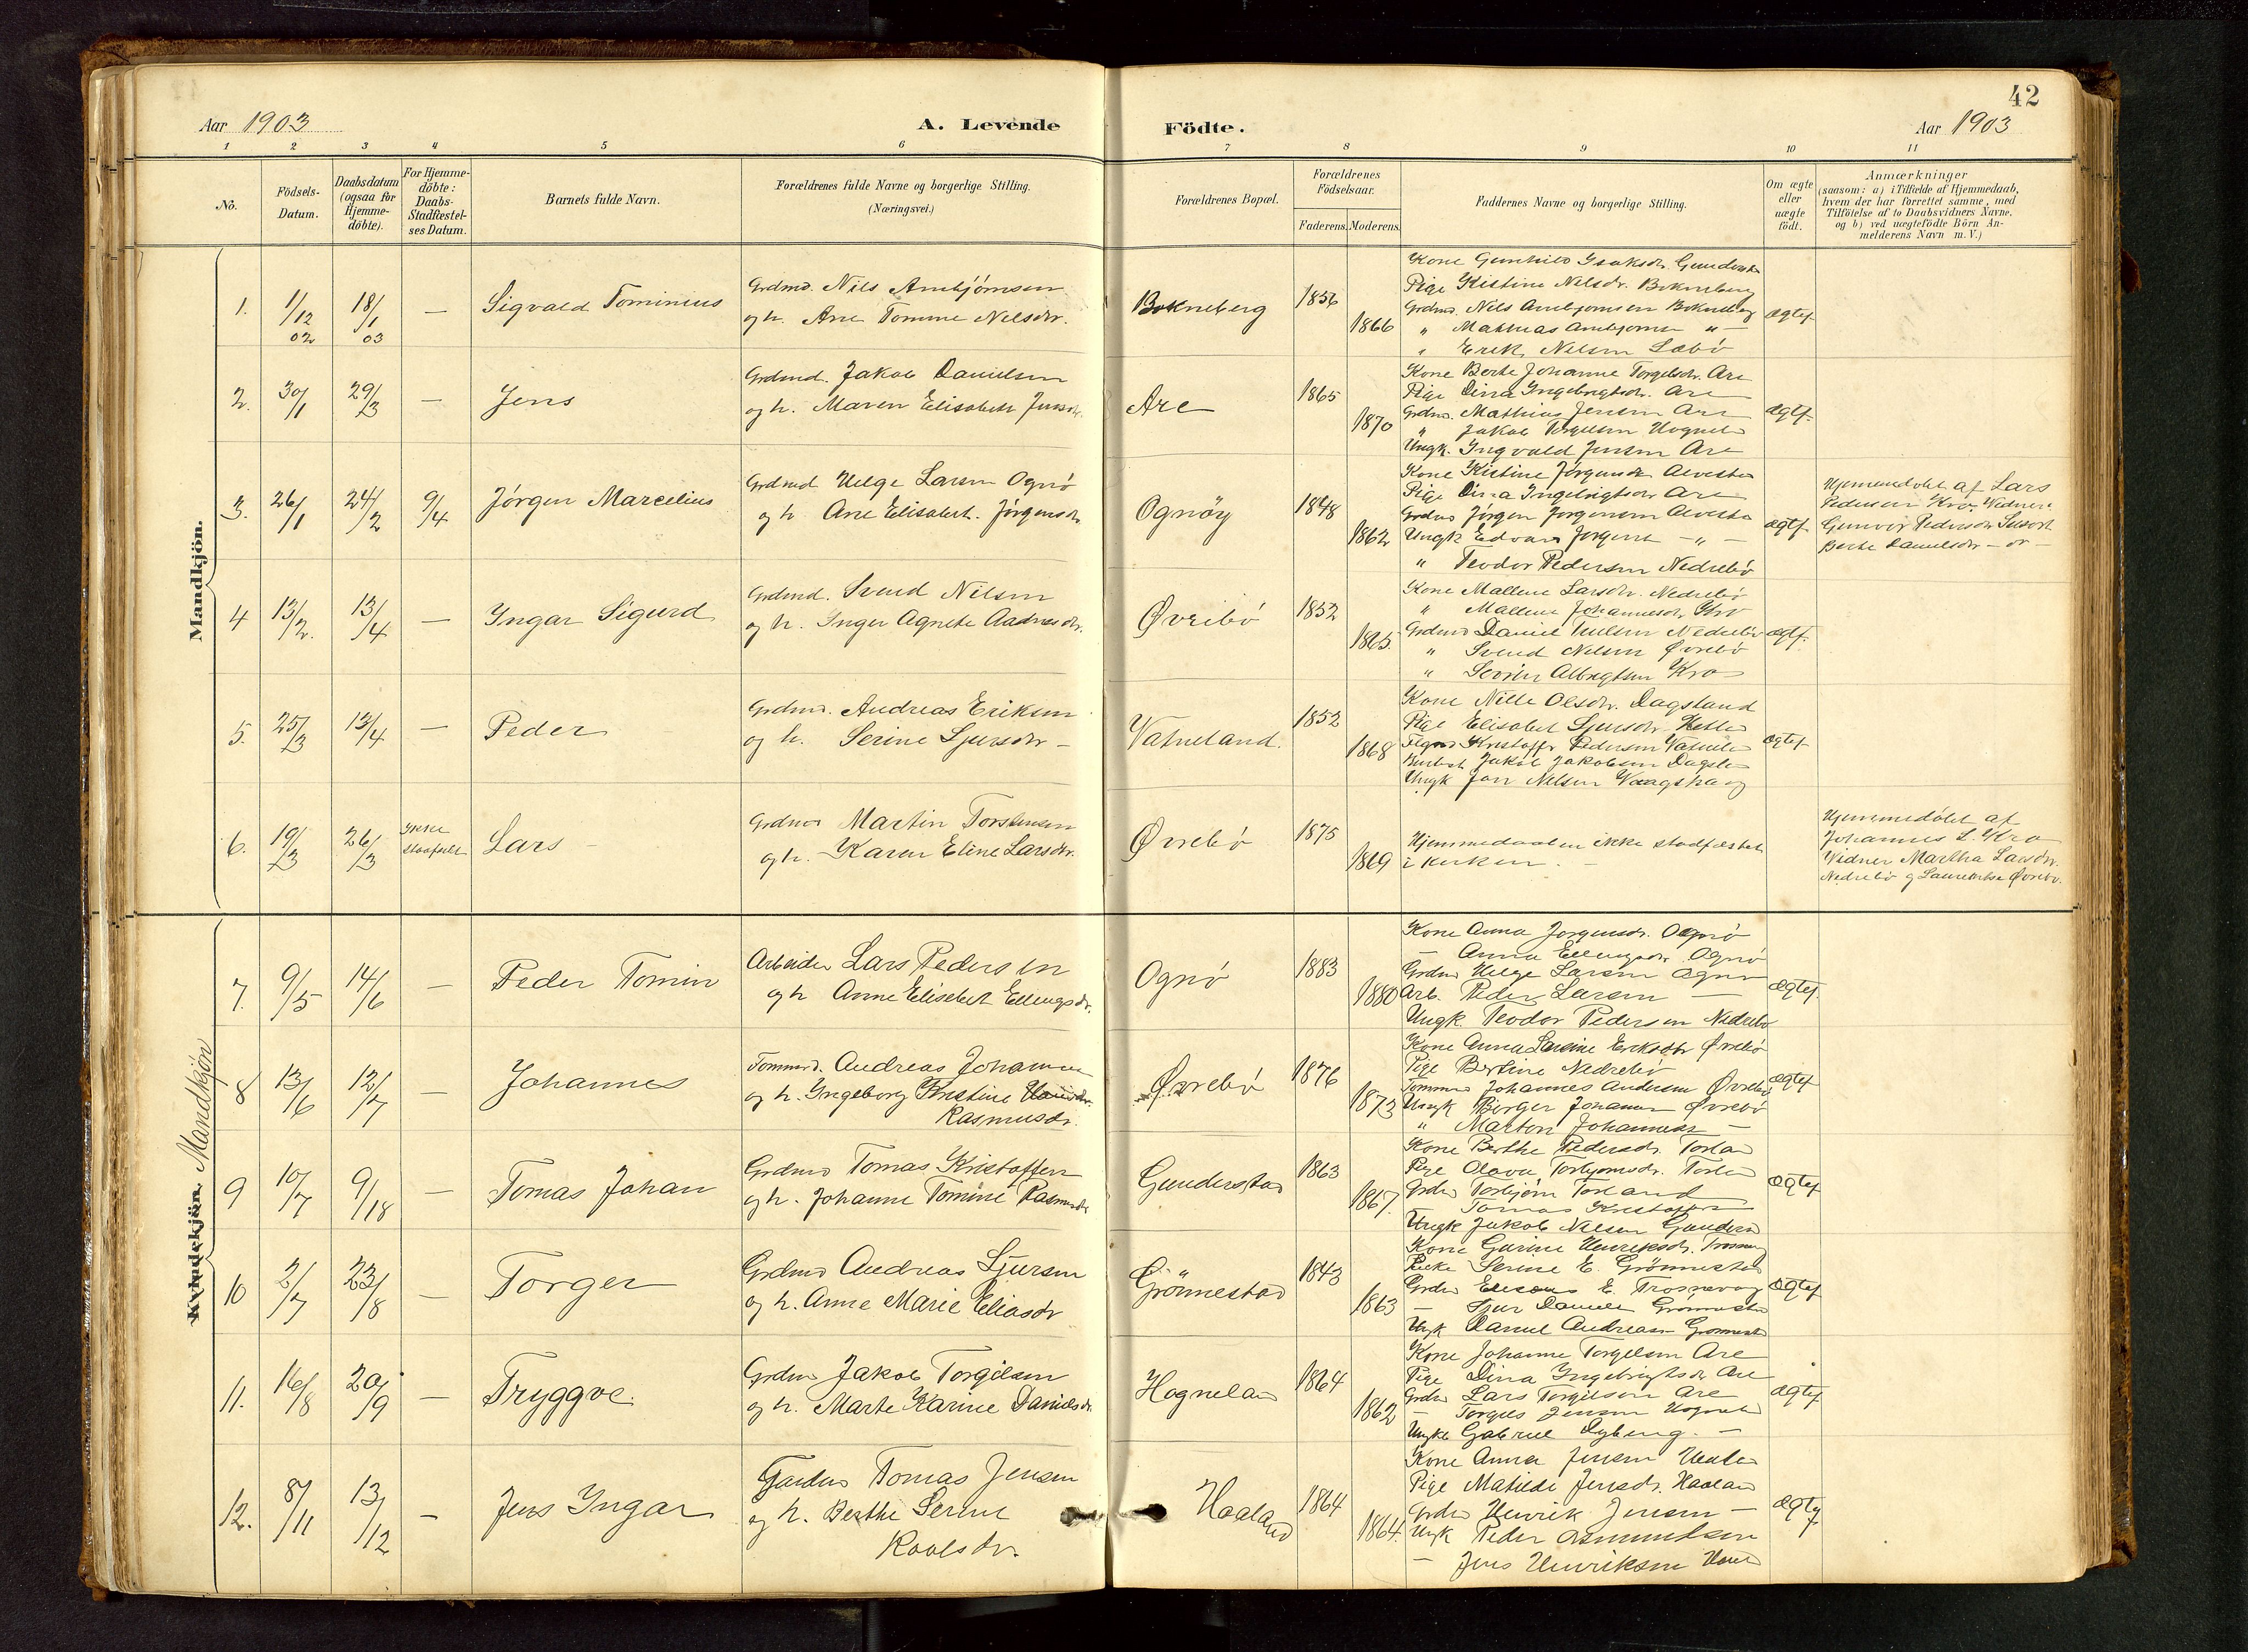 42
Aar 1903
A. Levende Födte.
Aar 1903
1 2 3 4 5 6 7 8 9 10 11
No.
Födsels-Datum.
Daabsdatum (ogsaa for Hjemme-döbte).
For Hjemme-döbte: Daabs-Stadfæstel-ses Datum.
Barnets fulde Navn.
Forældrenes fulde Navne og borgerlige Stilling.
(Næringsvei.)
Forældrenes Bopæl.
Forældrenes Födselsaar.
Faderens. Moderens.
Faddernes Navne og borgerlige Stilling.
Om ægte eller uægte födt.
Anmærkninger
(saasom: a) i Tilfælde af Hjemmedaab,
hvem der har forrettet samme, med
Tilföielse af to Daabsvidners Navne,
og b) ved uægtefödte Börn An-
melderens Navn m. V.)
Mandkjön.
1. 1/12 02 18/1 03 — Sigvald Tominius
Grdmd. Nils
og h. Ane Tomine Nelsdr.
Bokneberg 1856 1866
Pige Kistine Nelsdr. Bokneberg
Erik Nelsen
ægtef.
2. 30/1 29/3 — Jens
Grdmd. Jakob Danielsen
og h. Maren Elisabeth
Are 1865 1870
Kone Berte Johanne Torgelsdr. Are
Pige Dina Ingebrigtsdr. Are
Grdmd. Mathias Jensen Are
Ungk. Ingvald Jensen Are
ægtf.
3. 26/1 24/2 9/4 Jörgen Marcelius
Grdmd Helge Larsen Ognö
og h Ane Elisabeth Jörgensdr
Ognöy 1848 1862
Kone Kistine Jörgensdr.
Pige Dina Ingebrigtsdr Are
Grdmd Jörgen Jörgensen
" Teodor Pedersen Nedrebö
ægtf
Hjemmedöbt af Lars
Pedersen Kro. Vidner:
Gunvor Pedersdr
Berte Danielsdr
4 13/2. 13/4 — Ingar Sigurd
Grdmd. Svend Nilsen
og h. Inger Agnete Aadnesdr.
Øvrebö 1852 1865.
Kone Mallene Larsdr. Nedrebö
" Mallene Johannesdr. Kro
" Svend Nelsen Øvrebö
" Sören Albregtsen Kro
ægtf.
5. 25/3 13/4 — Peder
Grdmd. Andreas Eriksen
og h. Serine Sjursdr —
Vatneland. 1852 1868
Kone Nille Olsdr. Dagsland
Pige Elisabet Sjursdr.
Kristoffer Pedersen
Jakob Jakobsen
Ungk Jon Nelsen
ægtef
6. 19/3 26/3 Ikke Lars
Grdmd Martin Torstensen
og h. Karen Eline Larsdr.
Øvrebö 1875 1869
Hjemmedaaben ikke stadfæstet
i kirken. —
Hjemmedöbt af
Johannes L. Kro
Vidner Martha Larsdr.
Nedrebö og Øvrebö.
Kvindekjön. Mandkjön
7. 9/5 14/6 — Peder Tomin
Arbeider Lars Pedersen
og h Anne Elisabet Ellingsdr.
Ognö 1883 1880
Kone Anna Jörgensdr. Ognö
— Anna Ellingsdr. Ognö
Grdmd Helge Larsen Ognö
Arb. Peder Larsen —
Ungk. Teodor Pedersen Nedrebö
ægtef.
8 13/6 12/7 — Johannes
Tommerd. Andreas Johannesen
og h. Ingeborg Kristine
Rasmusdr.
Øvrebö 1876 1873
Kone Anna Lavine Eriksdr Øvrebö
Pige Bertine Nedrebö
Johannes Andersen Øvrebö
Ungk Börger Johannesen Øvrebö
" Marton Johannesen —
ægtef
9 10/7 9/18 — Tomas Johan
Grdmd Tomas Kristoffersen
og h. Johanne Tomine Rasmusdr
Gunderstad 1863 1867.
Kone Berthe Pedersdr.
Pige Olava Torbjörnsdr.
Grdmd Torbjörn Torland
Tomas Kristoffersen
Ungk Jakob Nelsen
ægtef
10 2/7 23/8 — Torger
Grdmd Andreas Sjursen
og h. Anne Marie Eliasdr
Grönnestad 1843 1863
Kone Gurine Henriksdr.
Serine E. Grönnestad
Grdmd E. Trosnavag
Ungk Daniel Andreasen
ægtef
11. 16/8 20/9 — Tryggve.
Grdmd Jakob Torgilsen
og h. Marte Karine Danielsdr.
Hognelan 1864 1862
Kone Johanne Torgelsen Are
Pige Dina Ingebrigtsdr Are
Grdmd Lars Torgilsen Are
— Torgils Jensen
Ungk Gabriel Dyberg. —
ægtef
12. 8/11 13/12 — Jens Ingar
Gaardmd Tomas Jensen
og h. Berthe Serine
Roalsdr.
Haaland 1864 1864.
Kone Anna Jensen
Pige Matilde Jensdr. Haaland
Grdmd Henrik Jensen —
Ungk Peder Asmundsen
— Jens Henriksen
ægtef